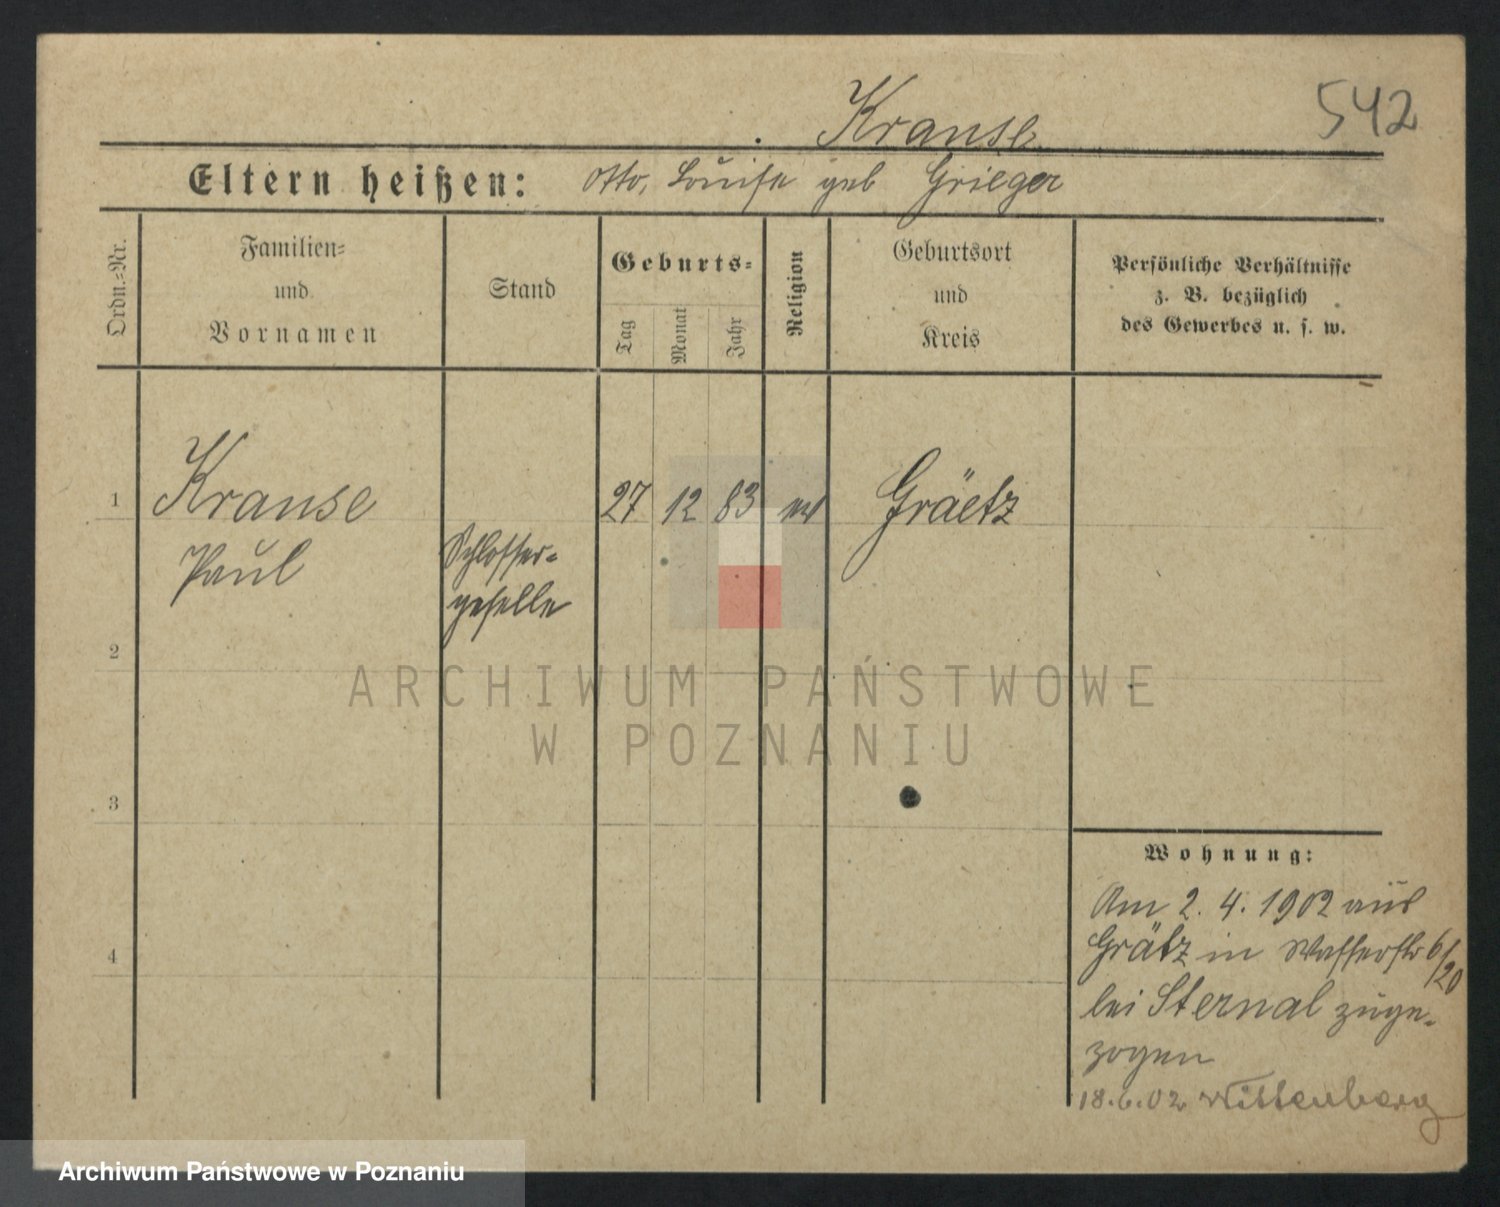 542
Krause
Eltern heißen: Otto, Louise geb Grieger
Ordn.=Nr.
Familien=
und
Vornamen
Stand
Geburts=
Tag
Monat
Jahr
Religion
Geburtsort
und
Kreis
Persönliche Verhältnisse
z. B. bezüglich
des Gewerbes u. s. w.
1
Krause
Paul
Schlosser-
geselle
27 12 83 ev
Gräetz
2
3
4
Wohnung:
Am 2. 4. 1902 aus
Grätz in Wasserstr 6/20
bei Sternal zuge-
zogen
18.6.02 Wittenberg
ARCHIWUM PAŃSTWOWE
W POZNANIU
Archiwum Państwowe w Poznaniu